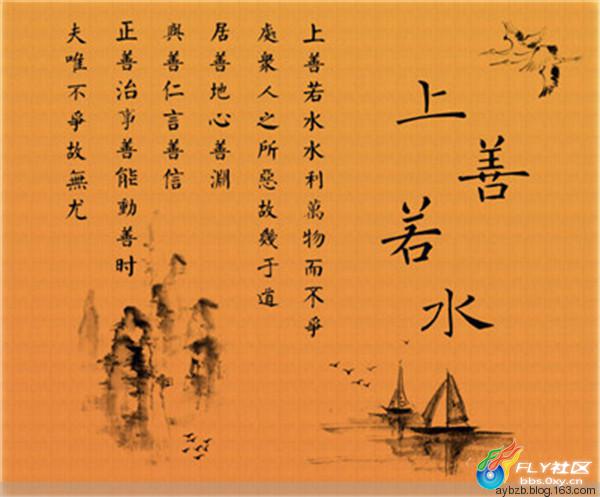 上善若水
上善若水水利萬物而不爭
處眾人之所惡故幾于道
居善地心善淵
與善仁言善信
正善治事善能動善时
夫唯不爭故無尤
FLY社区
bbs.0xy.cn
aybzb.blog.163.com